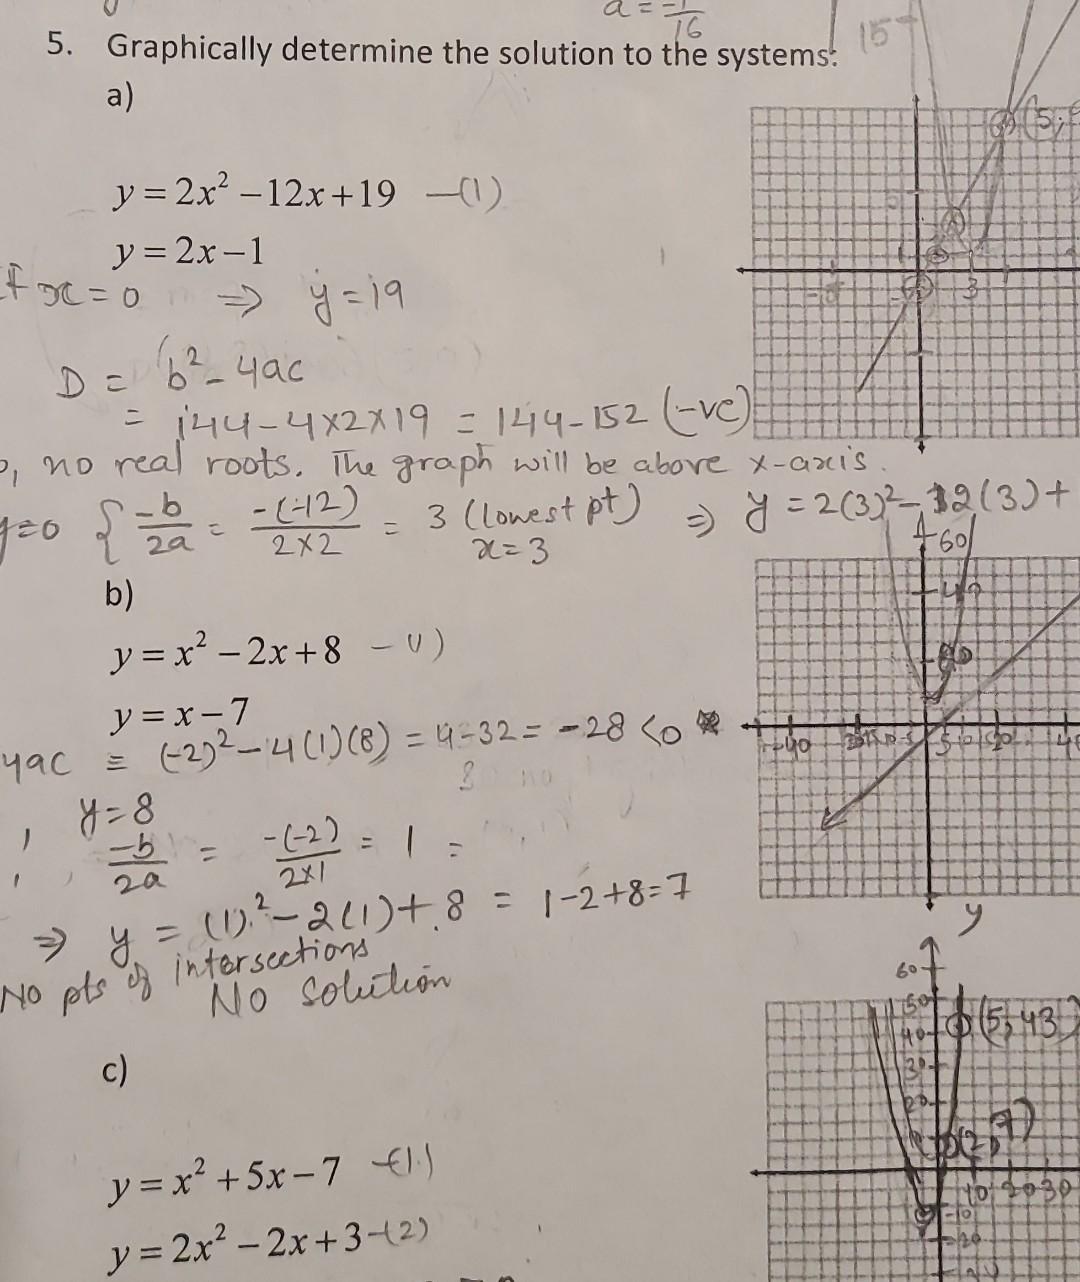 a = -1/16
5. Graphically determine the solution to the systems:
15
a)
(5,
y = 2x² − 12x + 19 —(1)
y = 2x − 1
If x = 0 ⇒ y = 19
3
D = b² - 4ac
= 144 - 4×2×19 = 144 - 152 (-ve)
no real roots. The graph will be above x-axis.
y=0 { -b/2a = -(-12)/2×2 = 3 (lowest pt) x = 3 ⇒ y = 2(3)² - 12(3) +
60
40
b)
y = x² − 2x + 8 - (1)
y = x − 7
4ac = (-2)² - 4(1)(8) = 4 - 32 = -28 < 0
-40 5 10 20 40
y = 8
-b/2a = -(-2)/2×1 = 1 =
⇒ y = (1)² - 2(1) + 8 = 1 - 2 + 8 = 7
y
No pts of intersections
No solution
60
50
(5, 43
40
30
20
(2, 7)
c)
10 20 30
y = x² + 5x − 7 -(1)
-10
y = 2x² − 2x + 3 -(2)
-20